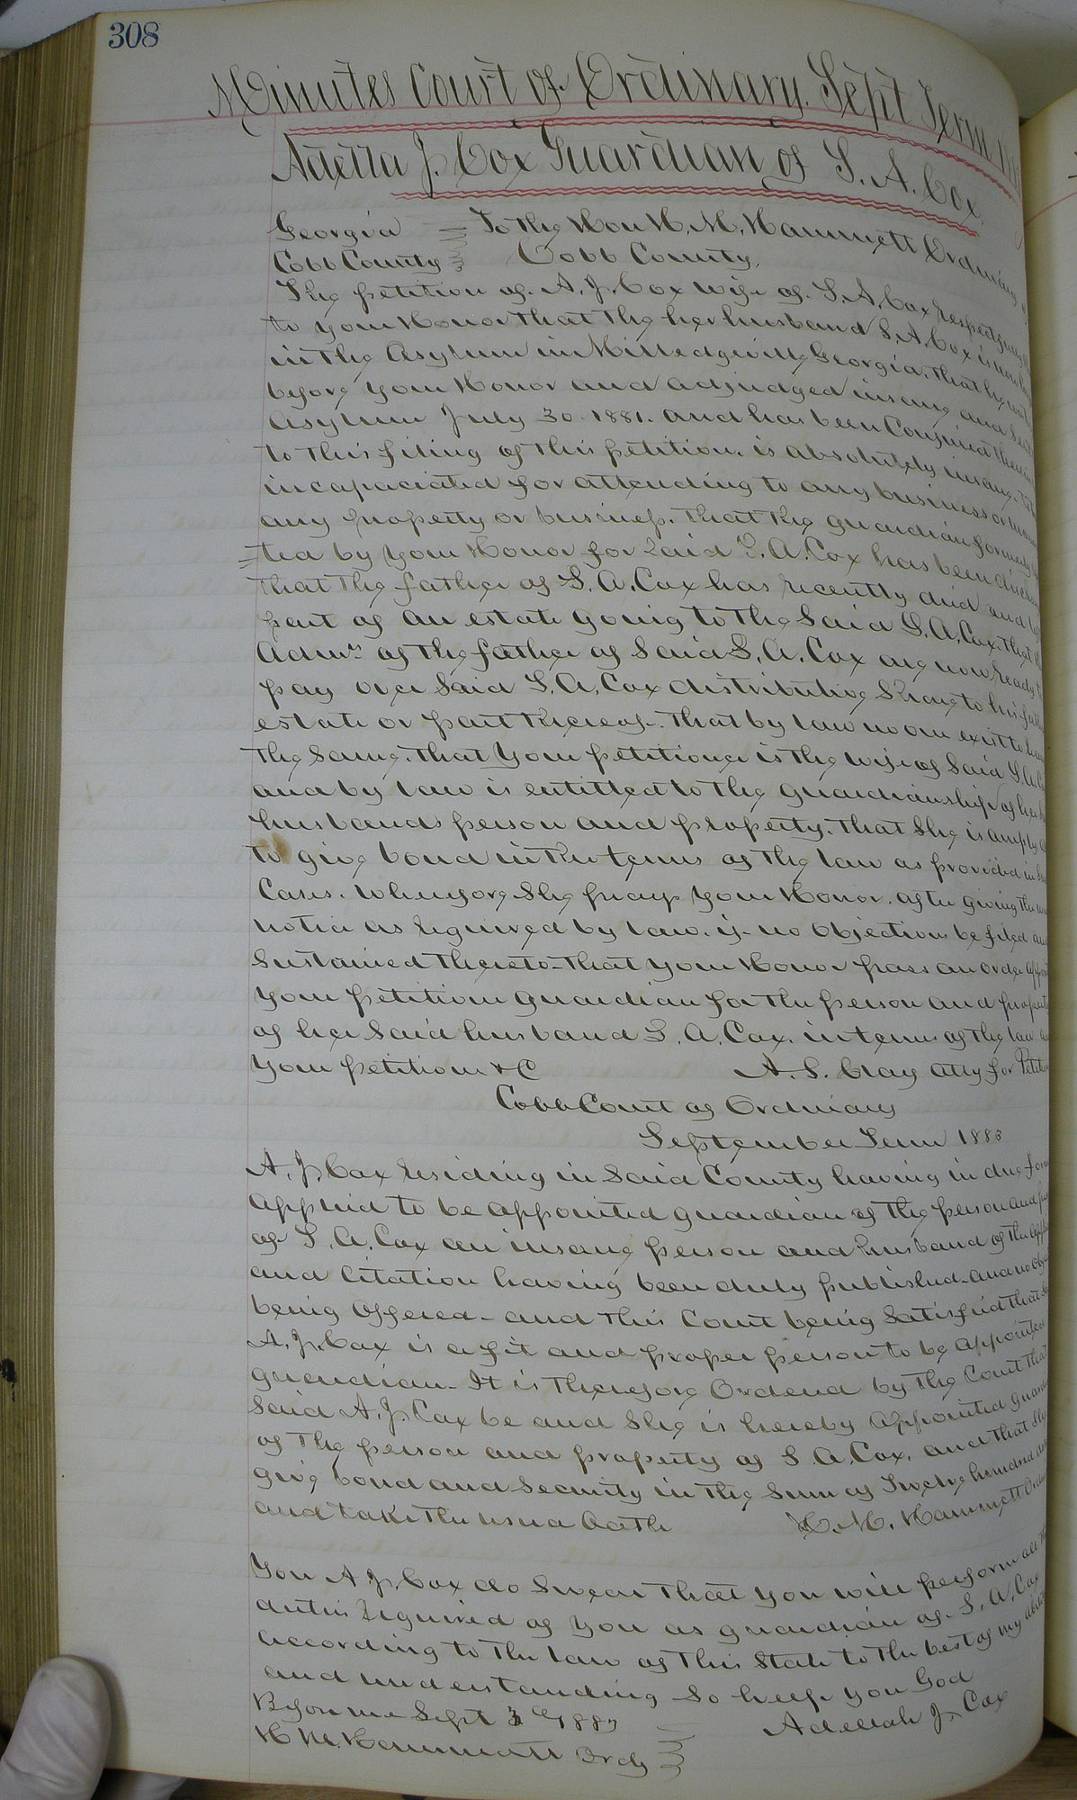 308
Minutes Court of Ordinary. Sept Term
J. Cox Guardian of S. A. Cox
Georgia To the Hon H. M. Hammett Ordinary
Cobb County Cobb County,
The petition of A. J. Cox wife of S. A. Cox respectfully
to your Honor that the her husband S. A. Cox is now
in the Asylum in Milledgeville Georgia, that he
before your Honor and adjudged insane and
Asylum July 30 1881. and has been Confined therein
to this filing of this petition. is absolutely insane.
incapaciated for attending to any business or
any property or business. that the guardian formerly
=ted by your Honor for said S. A. Cox has been
that the father of S. A. Cox has recently died and
part of an estate going to the said S. A. Cox. that
Admrs of the father of said S. A. Cox are now ready
pay over said S. A. Cox distributive Share to his
estate or part thereof. that by law no one exist to
the same. that your petitioner is the wife of said S. A.
and by law is entitled to the guardianship of her
husbands person and property. that she is amply
to give bond in the terms of the law as provided in
Cases. Wherefore she prays your Honor. after giving the
notice as required by law. if no objections be filed
Sustained thereto that your Honor pass an order
your petition guardian for the person and
of her said husband S. A. Cox. in terms of the law
your petition &C A. S. Clay Atty for
Cobb Court of Ordinary
September Term 1883
A. J. Cox residing in said County having in due form
applied to be appointed guardian of the person and
of S. A. Cox an insane person and husband of the
and Citation having been duly published and no
being offered and this Court being satisfied that
A. J. Cox is a fit and proper person to be appointed
guardian. It is therefore Ordered by the Court that
said A. J. Cox be and she is hereby appointed
of the person and property of S. A. Cox. and that she
give bond and security in the sum of Twelve hundred
and take the usua Oath H. M. Hammett
You A. J. Cox do Swear that you will perform all
duties required of you as guardian of S. A. Cox
according to the law of this State to the best of my
and understanding So help you God
Before me Sept 3 Adellah J. Cox
H M. Hammett Ordy